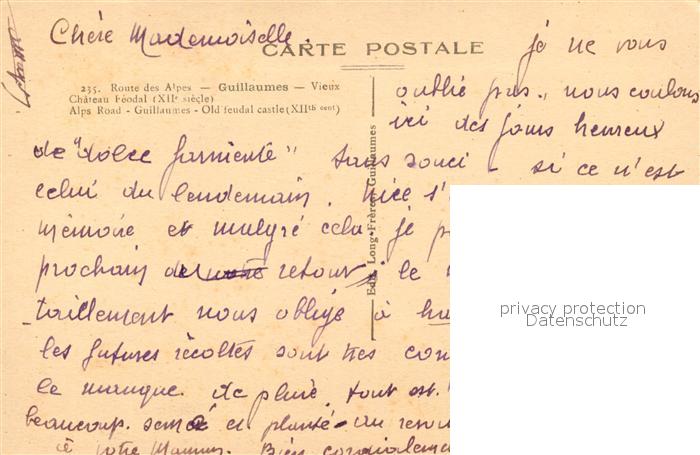 Chère Mademoiselle.
CARTE POSTALE
je ne vous
235. Route des Alpes — Guillaumes — Vieux
Château Féodal (XIIe siècle)
Alps Road - Guillaumes - Old feudal castle (XIIth cent)
oublie pas, nous coulons
ici des jours heureux
de "dolce farniente" sans souci - si ce n'est
celui du lendemain. Nice s'
mémoire et malgré cela je
prochain retour le
taillement nous oblige à
les futures récoltes sont très
le manque de pluie. tout est
beaucoup semé et planté. Au
à votre Maman. Bien
Edit. Long-Frères, Guillaumes
privacy protection
Datenschutz